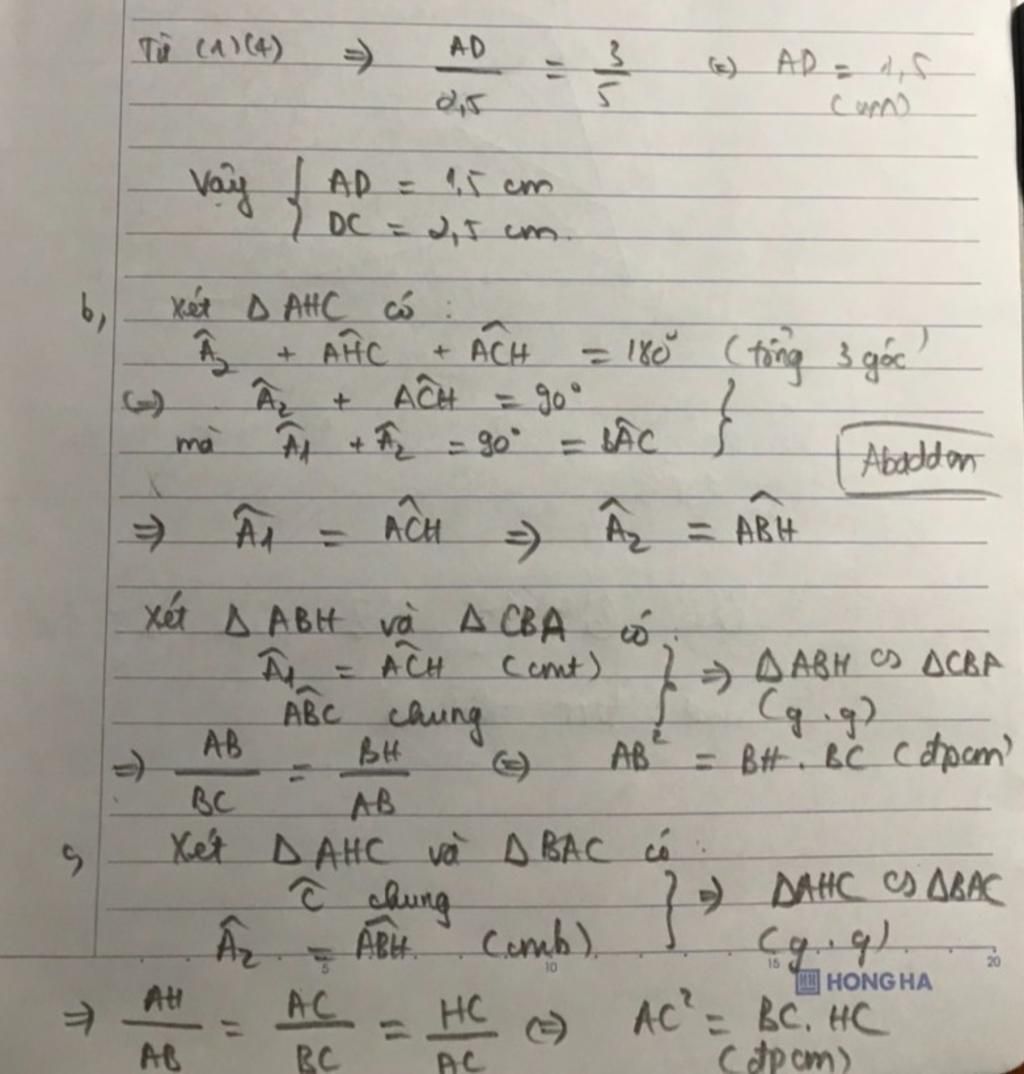 Từ (1)(4) ⇒ AD/2,5 = 3/5 (=) AD = 1,5 (cm)
Vậy { AD = 1,5 cm
DC = 2,5 cm.
b, Xét Δ AHC có :
Â₂ + AĤC + AĈH = 180° (tổng 3 góc)
(=) Â₂ + AĈH = 90° }
mà Â₁ + Â₂ = 90° = BÂC
Abaddon
⇒ Â₁ = AĈH ⇒ Â₂ = AB̂H
Xét Δ ABH và Δ CBA có :
Â₁ = AĈH (cmt) } ⇒ Δ ABH ∽ ΔCBA
AB̂C chung (g.g)
⇒ AB/BC = BH/AB (=) AB² = BH . BC (đpcm)
c, Xét Δ AHC và Δ BAC có :
Ĉ chung } ⇒ ΔAHC ∽ ΔBAC
Â₂ = AB̂H (cmb) (g.g)
5 10 15 20
HONG HA
⇒ AH/AB = AC/BC = HC/AC (=) AC² = BC. HC
(đpcm)